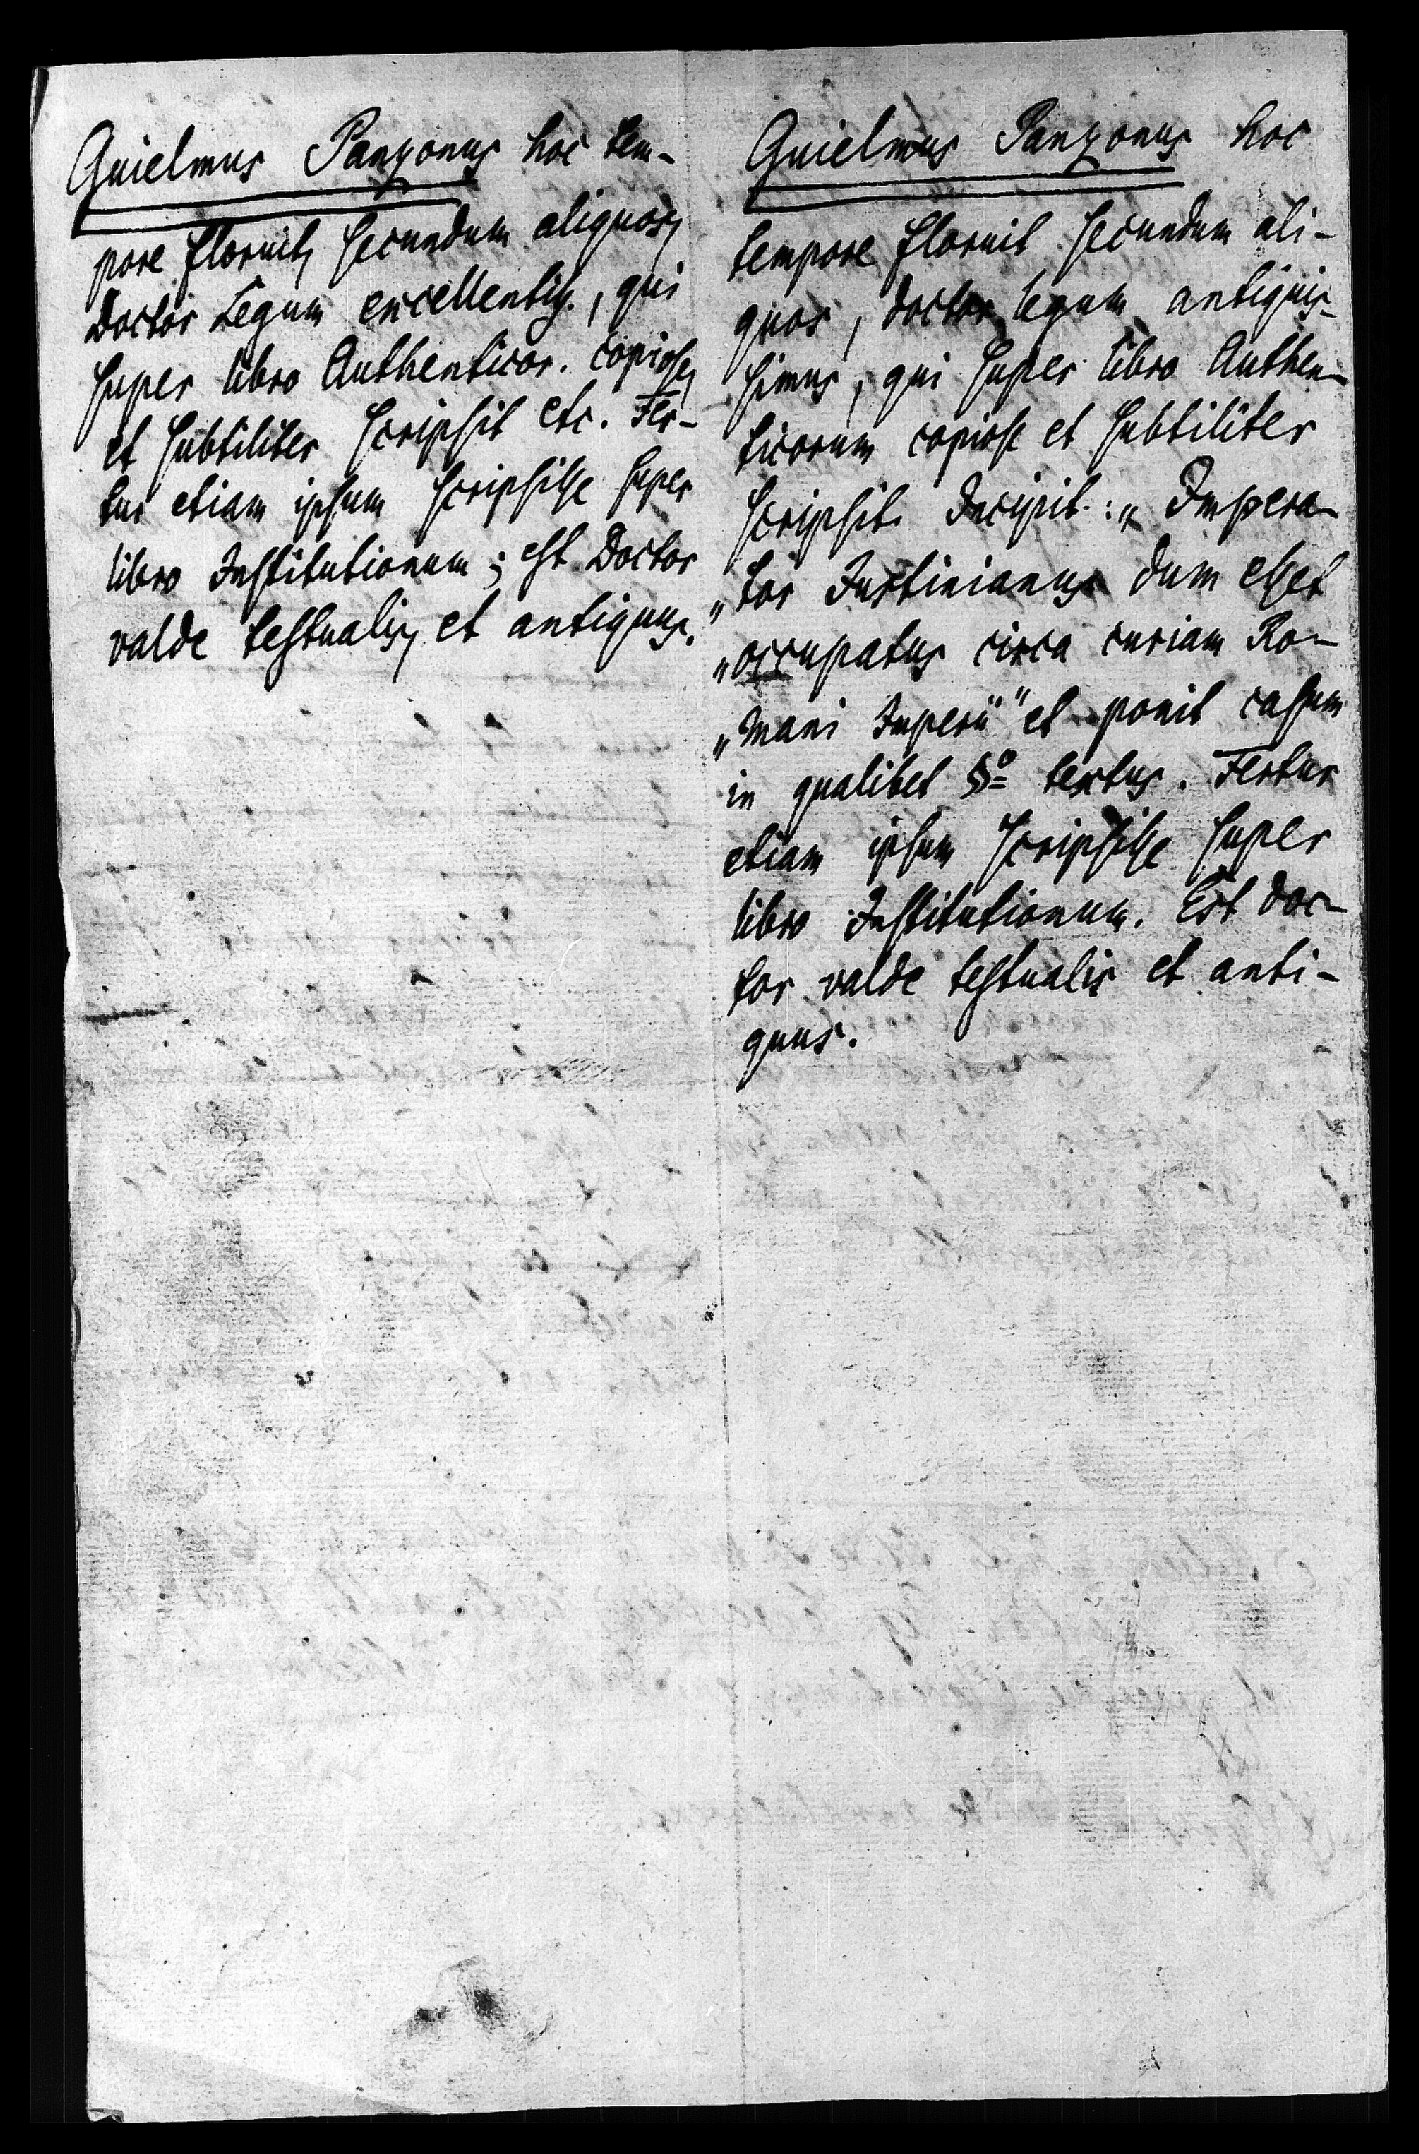 Guielmus Panzonus hoc tem-
pore floruit, secundum aliquos,
Doctor Legum excellentiss., qui
super libro Authenticor. copiose,
et subtiliter scripsit etc. Fer-
tur etiam ipsum scripsisse super
libro Institutionum; est Doctor
valde testualis, et antiquus.
Guielmus Panzonus hoc
tempore floruit secundum ali-
quos, doctor legum antiquis-
simus, qui super libro Authen-
ticorum copiose et subtiliter
scripsit. Incipit: „ Impera-
„tor Justinianus dum esset
„occupatus circa curiam Ro-
„mani Imperii" et ponit casum
in qualibet §º textus. Fertur
etiam ipsum scripsisse super
libro Institutionum. Est doc-
tor valde testualis et anti-
quus.